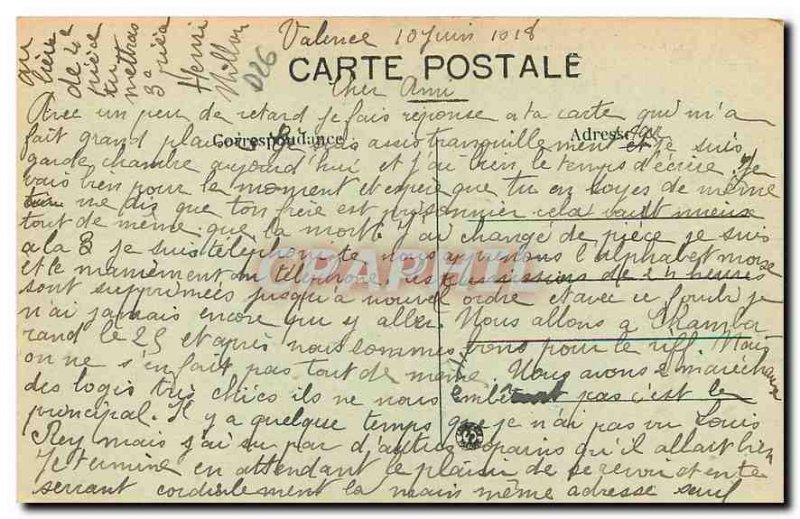 Valence 10 Juin 1918
CARTE POSTALE
Cher Ami
Avec un peu de retard je fais reponse a ta carte qui m'a
fait grand plaisir. Je suis assis tranquillement et je suis
Correspondance
Adresse
garde chambre aujourd'hui et j'ai bien le temps d'écrire. Je
vais bien pour le moment et espère que tu en soyes de même
tu me dis que ton frère est prisonnier cela vaut mieux
tout de même que la mort. J'ai changé de pièce je suis
a la 8 je suis téléphoniste, nous apprenons l'alphabet morse
et le maniement du téléphone. Les permissions de 24 heures
sont supprimées jusqu'a nouvel ordre et avec ce fourbi je
n'ai jamais encore que y aller. Nous allons a Chamba
rand le 25 et après nous sommes bons pour le riff. Mais
on ne s'en fait pas tout de même. Nous avons 2 maréchaux
des logis très chics ils ne nous embêtent pas c'est le
principal. Il y a quelque temps que je n'ai pas vu Louis
Rey mais j'ai su par d'autres copains qu'il allait bien
Je termine en attendant le plaisir de se revoir et en te
serrant cordialement la main même adresse seul
au
lieu
de 4e
pièce
tu
mettras
3e pièce
Henri
D26
CPAPHIL